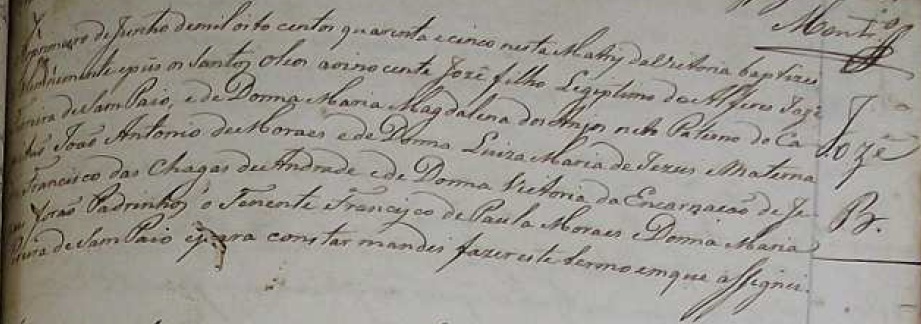 primeiro de Junho de mil oito centos quarenta e cinco nesta Matriz da Victoria baptizei
Solemnemente e puis os Santos Oleos ao inocente Jozé filho Legiptimo do Alferes Jozé
Pereira de Sam Paio, e de Donna Maria Magdalena dos Anjos neto Paterno do Ca-
João Antonio de Moraes e de Donna Luiza Maria de Jezus e Materna
Francisco das Chagas de Andrade e de Donna Victoria da Encarnacaõ de Je-
Foraõ Padrinhos o Tenente Francisco de Paula Moraes e Donna Maria
Pereira de Sam Paio e para constar mandei fazer este termo em que assignei.
Jozé
B.